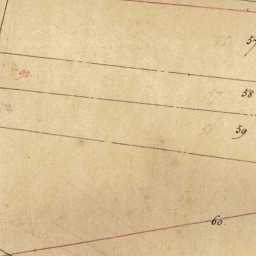 57
90
58
59
60.